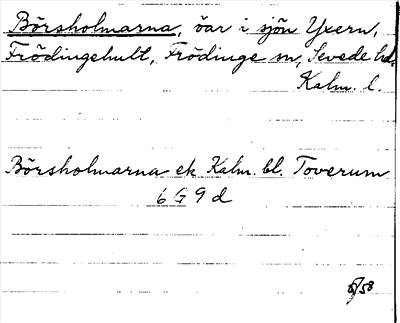 Börsholmarna, öar i sjön Yxern,
Frödingehult, Frödinge sn, Sevede hd,
Kalm. l.
Börsholmarna ek Kalm. bl. Toverum
6 G 9 d
5/58